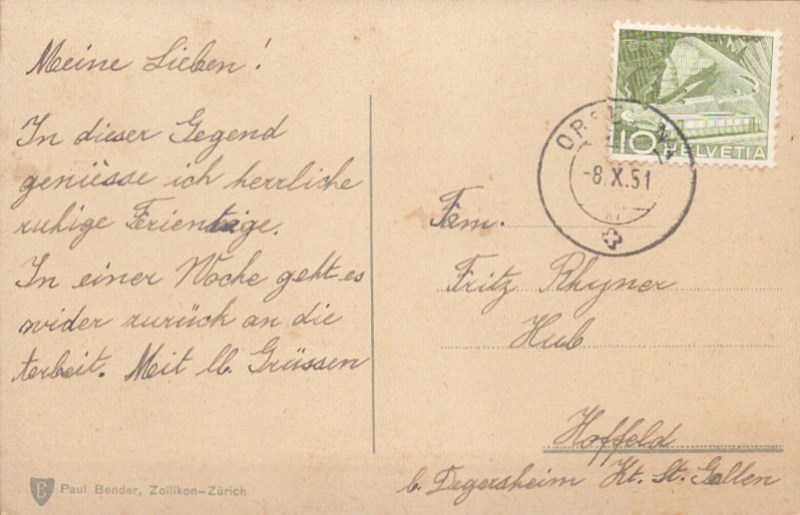 Meine Lieben!
In dieser Gegend
genüsse ich herrliche
ruhige Ferientäge.
In einer Woche geht es
wider zurück an die
Arbeit. Mit lb. Grüssen
Paul Bender, Zollikon-Zürich
10 HELVETIA
-8.X.51
Fam.
Fritz Rhyner
Hub
Hoffeld
b. Degersheim Kt. St. Gallen